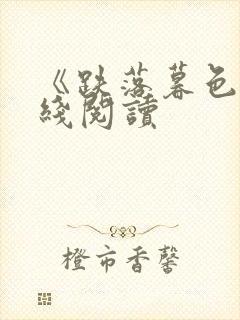 《跌落暮色
綫閱讀
橙市香馨